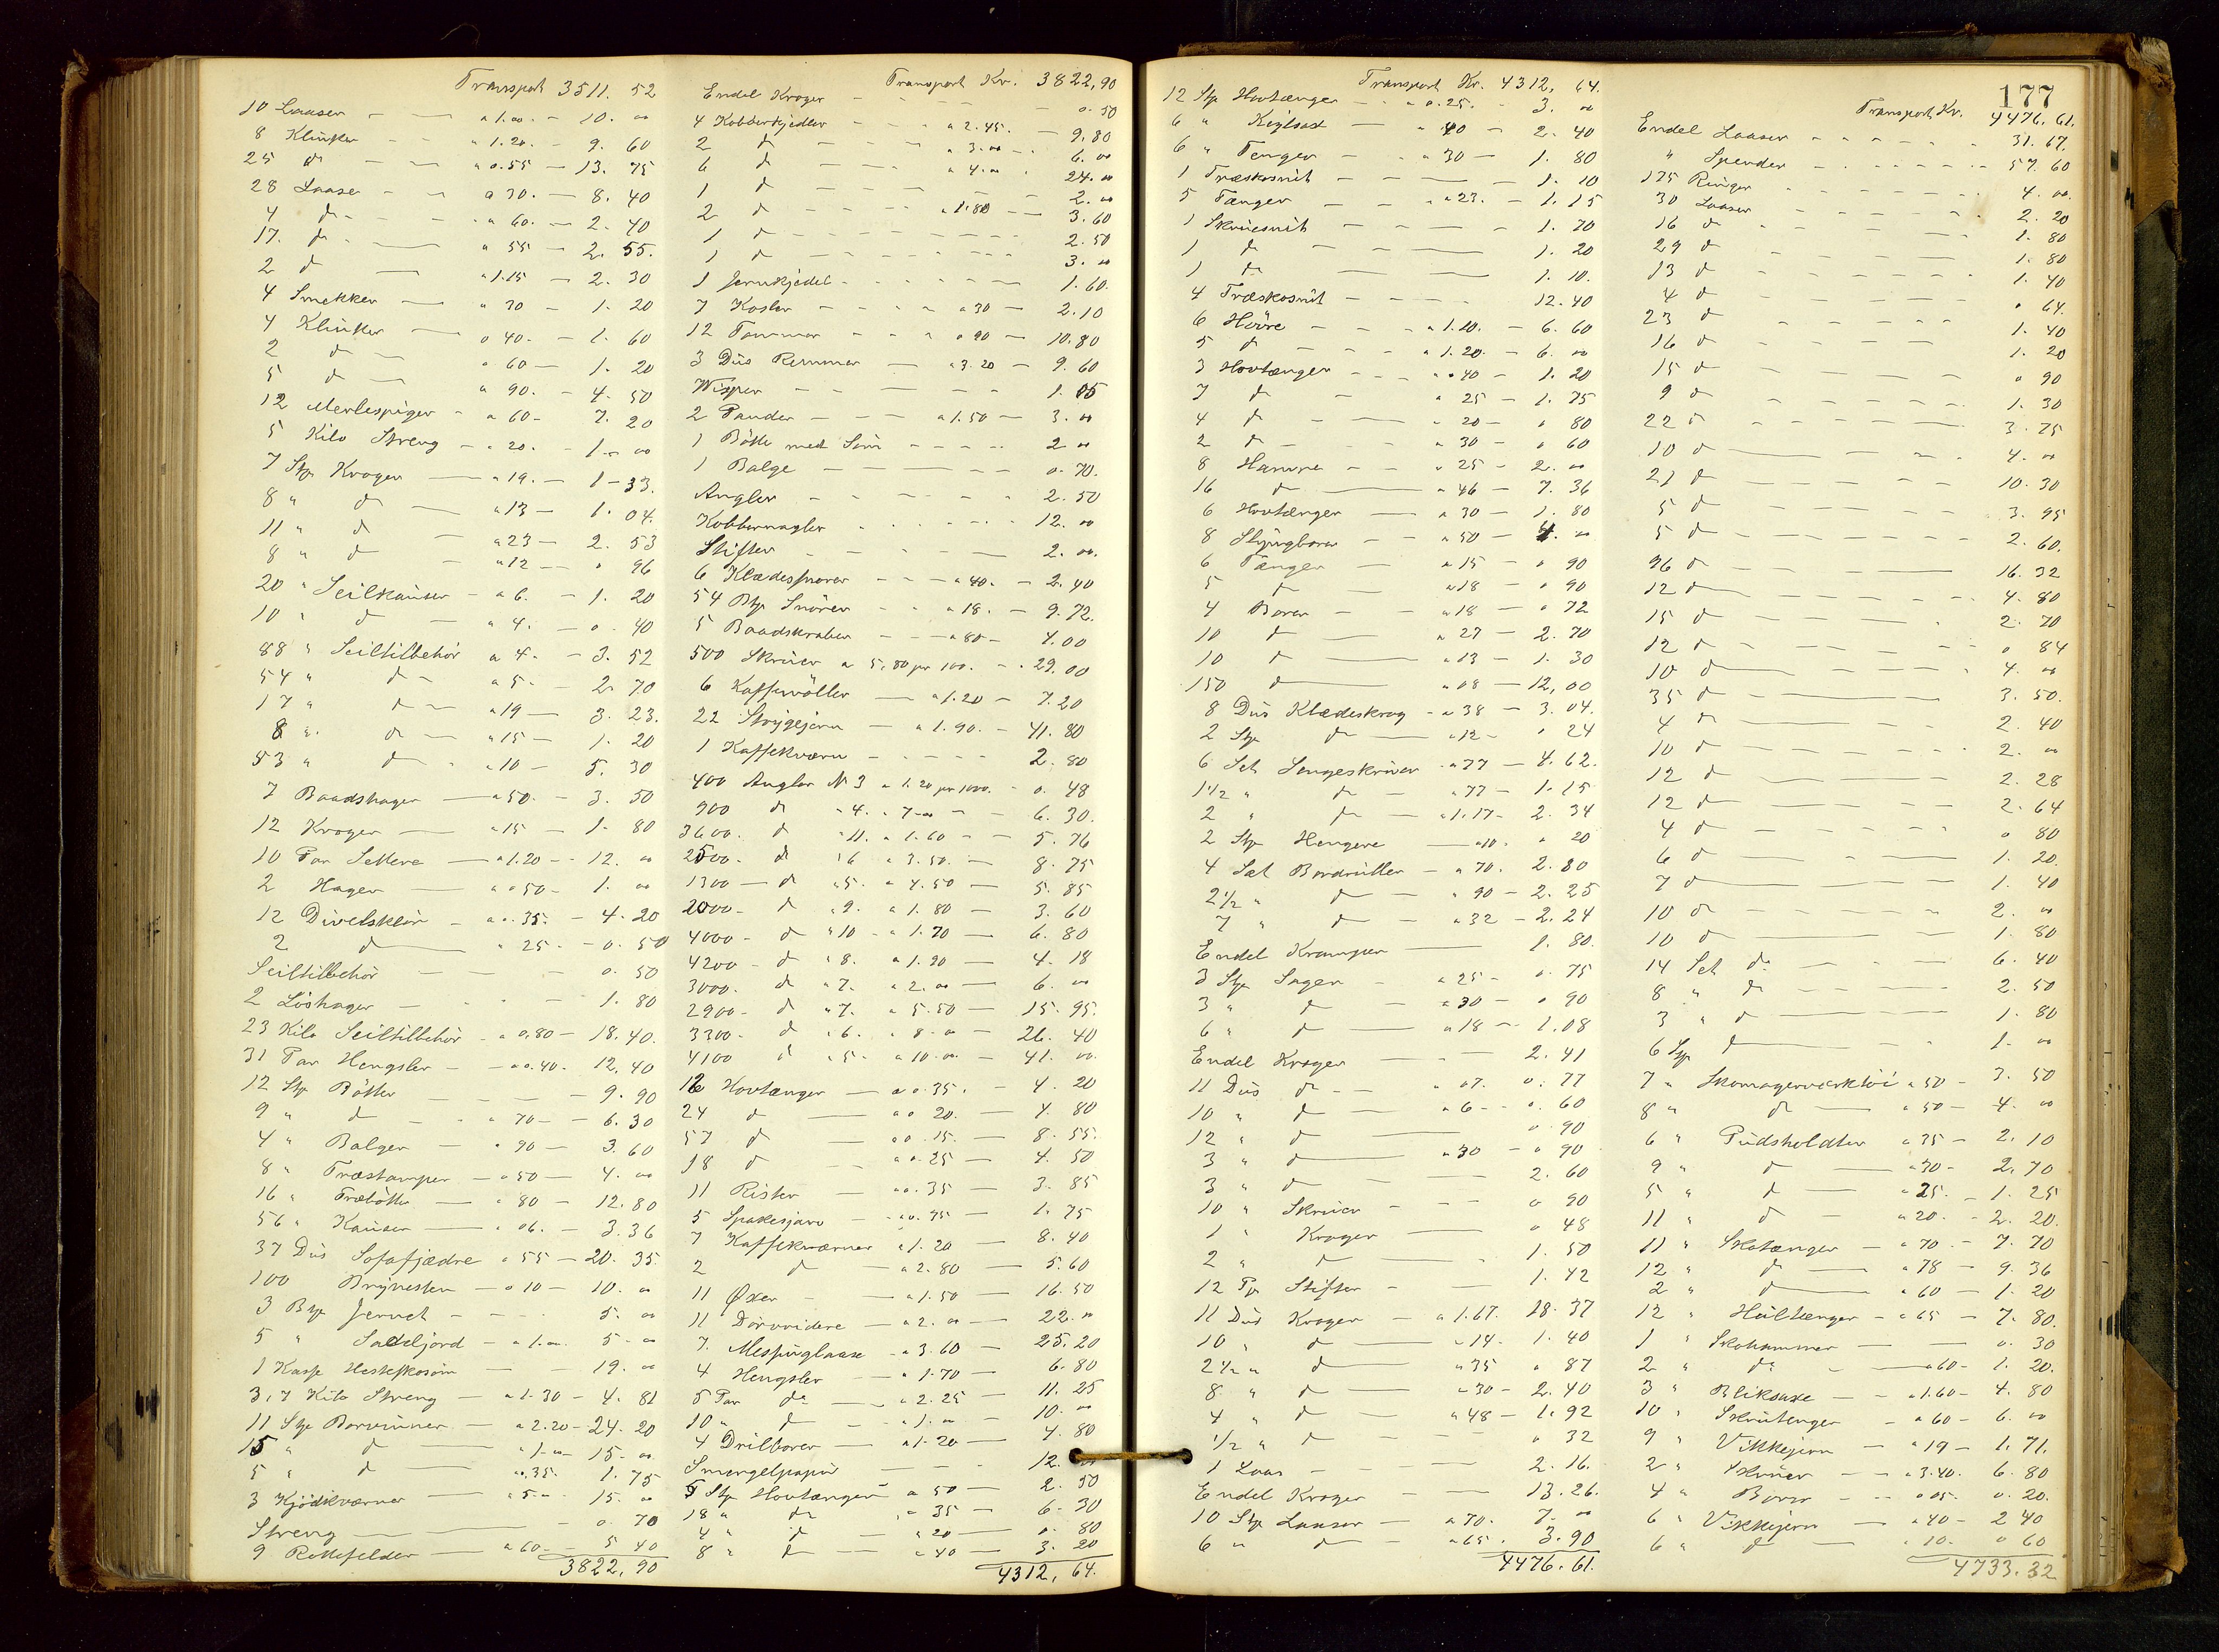 Transport 3511. 52
10 Laaser - - a 1.00. - 10. 00
8 Klinker - - " 1.20. - 9. 60
25 do - - " 0.55 - 13. 75
28 Laase - - a 30. - 8. 40
4 do - - - " 60. - 2. 40
17. do - - " 55 - 2. 55.
2 do - " 1.15 - 2. 30
4 Smekker - " 30 - 1. 20
4 Klinker - o 40. - 1. 60
2 do - " 60 - 1. 20
5 do - a 90. - 4. 50
12 Merlespiger - a 60 - 7. 20
5 Kilo Streng - " 20. - 1. 00
7 Stp Kroger - " 19. - 1 - 33.
8 " do - " 13 - 1. 04.
11 " do - a 23 - 2. 53
8 " do - " 12 - " 96
20 " Seilkauser - a 6. - 1. 20
10 " do - " 4. - 0. 40
88 " Seiltilbehör a 4. - 3. 52
54 " do - " 5 - 2. 70
17 " do - " 19 - 3. 23.
8 " do - " 15 - 1. 20
53 " do - " 10 - 5. 30
7 Baadshager - " 50. - 3. 50
12 Kroger - " 15 - 1. 80
10 Par Settere - " 1.20 - 12. 00
2 Hager - " 0 50 - 1. 00
12 Divelsklör - a 0. 35. - 4. 20
2 do - " 25. - 0. 50
Seiltilbehör - - - 0. 50
2 Löshager - - - 1. 80
23 Kilo Seiltilbehör - a 0,80 - 18. 40.
31 Par Hengsler - - a 0. 40. 12, 40
12 Stp Bötter - - - 9. 90
9 " do - - " 70 - - 6. 30
4 " Balger - " 90 - 3. 60
8 " Træstamper - " 50 - 4. 00
16 " Træbötter - " 80 - 12. 80
56 " Kauser - " 06. - 3. 36
37 Dus Sofafjædre " 55 - 20. 35.
100 Brynesten - " 10 - 10. 00
3 Btp Jernet - - - 5. 00
5 " Sadeljord - " 1.00. 5 - 00
1 Kasse Hesteskosöm - 19. 00
3,7 Kilo Streng - " 1.30 - 4. 81
11 Stp Borvinner - a 2.20 - 24. 20
15 " do - " 1.00 - 15. 00
5 " do - " 0. 35. 1. 75
3 Kjödkværner - " 5.00 15. 00
Streng - - 0. 70
9 Rottefelder - " 60 - - 5 40
3822, 90
Transport Kr. 3822,90
Endel Kroger - - - - 0. 50
4 Kobberkjedler - - a 2.45. - 9. 80
2 do - - - " 3.00 - 6. 00
6 do - - - " 4.00 . 24. 00
1 do - - - - 2. 00
2 do - - - " 1.80 - 3. 60
1 do - - - - 2. 50
1 do - - - - 3. 00
1 Jernkjedel - - - - 1. 60.
7 Koster - - - a 30 - 2. 10
12 Tommer - - " 90 - 10. 80
3 Dus Remmer - " 3.20 - 9. 60
Wisper - - - - 1. 05
2 Pander - - - a 1.50 - 3. 00
1 Bötte med Söm - - - 2. 00
1 Balge - - - - 0. 70.
Angler - - - - 2. 50
Kobbernagler - - - 12. 00
Stifter - - - - 2. 00.
6 Klædesnorer - - " 40. - 2. 40
54 Btp Snörer - - " 18. - 9. 72.
5 Baadskraber - - " 80 - 4.00
500 Skruer a 5,80 pr 100. - - 29. 00
6 Kaffemöller - " 1.20 - 7. 20
22 Strygejern - a 1.90. - 41. 80
1 Kaffekværn - - - 2. 80
400 Angler N 3 a 1.20 pr 1000. - 0. 48
900 do " 4. " 7.00 - - 6. 30.
3600. do " 11. " 1.60 - - 5. 76
2500. do " 6 " 3.50. - 8. 75
1300 - do " 5. " 4.50 - 5. 85
2000 - do " 9. " 1.80 - 3. 60
4000 - do " 10 - " 1.70 - 6. 80
4200 - do " 8. " 1.20 - 4. 18
3000. do " 7. " 2.00 - 6. 00
2900 - do " 7. " 5.50 - 15. 95.
3300. do " 6. " 8.00 - 26. 40
4100 do " 5. " 10.00 - 41. 00
12 Hovtænger - a 0. 35. - 4. 20
24 do - a 0 20. - 4. 80
57 do - a 0. 15. - 8. 55.
18 do - - a 0. 25 - 4. 50
11 Rister - a 0. 35 - 3. 85
5 - a 0. 35 - 1. 75
7 Kaffekværner " 1.20 - 8. 40
2 do - " 2.80 - 5. 60
11 Øxer - - " 1.50 - 16. 50
11 Dörvridere - " 2.00 - 22. 00
7. Messinglaase - " 3.60 - 25. 20
4 Hengsler - " 1.70 - 6. 80
5 Par do - " 2.25 - 11. 25
10 " do - - " 1.00 - 10. 00
4 Drilborer - " 1.20 - 4. 80
Smergelpapir - - - 12. 00
5 Stp Hovtænger a 50 - 2. 50
18 " do - " 35 - 6. 30
4 " do - " 20 - 0. 80
8 " do - " 40 - 3. 20
4312, 64.
Transport Kr. 4312, 64.
12 Stp Hovtænger - - a 0.25. - 3. 00
6 " - " 40 - 2. 40
6 " Tenger - - " 30 - 1. 80
1 Træskosnit - - - 1. 10
5 Tænger - - " 23. - 1. 15
1 Skruesnit - - - 1. 70
1 do - - - 1. 20
1 do - - - 1. 10.
4 Træskosnit - - - 12. 40
6 Hövre - - - a 1.10. - 6. 60
5 do - - - a 1.20. - 6. 00
3 Hovtænger - - - " 40 - 1. 20
7 do - " 25 - 1. 75
4 do - - " 20 - " 80
2 do - - " 30 - " 60
8 Hamre - - " 25 - 2. 00
16 do - " 46 - 7. 36
6 Hovtænger - a 30 - 1. 80
8 Slyngborer - - " 50 - 4. 00
6 Tænger - " 15 - " 90
5 do - " 18 - " 90
4 Borer - - " 18 - " 72
10 do - " 27 - 2. 70
10 do - " 13 - 1. 30
150 do - " 08 - 12,00
8 Dus Klædeskrog - " 38 - 3. 04.
2 Stp do - " 12 - " 24
6 Set Sengeskruer " 77 - 4. 62.
1 1/2 " do - " 77 - 1. 15
2 " do - " 1.17 - 2. 34
2 Stp Hengere - " 10. " 20
4 Sæt Bordruller - " 70. 2. 80
2 1/2 " do - " 90 - 2. 25
7 " do - " 32 - 2. 24
Endel Kramper - 1. 80.
3 Stp Sager - " 25 - 0. 75
3 " do - " 30 - " 90
6 " do - " 18 - 1.08
Endel Kroger - - 2. 41
11 Dus do - - " 07. 0. 77
10 " do - " 6 - - 0. 60
12 " do - " 90
3 " do - " 30 - " 90
3 " do - - 2. 60
10 " Skruer - - " 90
1 " Kroger - " 48
2 " do - 1. 50
12 Pp Stifter - - 1. 42
11 Dus Kroger - a 1.67. 18. 37
10 " do - " 14 - 1. 40
2 1/2 " do - " 35 " 87
8 " do - " 30 - 2. 40
4 " do - " 48 - 1. 92
1/2 " do - - " 32
1 Laas - - - 2. 16.
Endel Kroger - - 13. 26.
10 Stp Laaser - a 70. 7. 00
6 " do - " 65. 3. 90
4476. 61.
177
Transport Kr. 4476. 61.
Endel Laaser - - - - 31. 67.
" Spender - - - - 57. 60
175 Ringer - - - - 4. 00.
30 Laaser - - - - 2. 20
16 do - - - - 1. 80
29 do - - - - 1. 80
13 do - - - - 1. 40
4 do - - - - " 64.
23 do - - - - 1. 40
16 do - - - - 1. 20
15 do - - - - " 90
9 do - - - - 1. 30
22 do - - - - 3. 75
10 do - - - - 4. 00
21 do - - - - 10. 30
5 do - - - - 3. 95
5 do - - - - 2. 60.
96 do - - - - 16. 32
12 do - - - - 4. 80
15 do - - - - 2. 70
12 do - - - - " 84
10 do - - - - 4. 00
35 do - - 3. 50.
4 do - - 2. 40
10 do - - - - 2. 00
12 do - - 2. 28
12 do - - 2. 64
4 do - - - - " 80
6 do - - 1. 20.
7 do - - 1. 40
10 do - - - - 2. 00
10 do - - 1. 80
14 Set do - - - 6. 40
8 " do - - - 2. 50
3 " do - - 1. 80
6 Stp do - - 1. 00
7 " Skomagerværktöi a 50 - 3. 50
8 " do - " 50 - 4. 00
6 " Pudsholdter " 35 - 2. 10
9 " do - " 30 - 2. 70
5 " do - " 25. - 1. 25
11 " do - " 20. - 2. 20.
11 " Skotænger - " 70 - 7. 70
12 " do - " 78 - 9. 36
2 " do - " 60 - 1. 20
12 " Hultænger - " 65 - 7. 80.
1 " Skohammer - - 0. 30
2 " do - " 60 - 1. 20.
3 " Bliksaxe - - " 1.60 - 4. 80
10 " Skrutenger - " 60 - 6. 00
9 " Vikkejern - " 19 - 1. 71.
2 " Skruer - - " 3.40. 6. 80
4 " Borer - - " 05. 0. 20.
6 " Vikkejern - " 40 - 2 40
6 " do - " 10. " 60
4733. 32